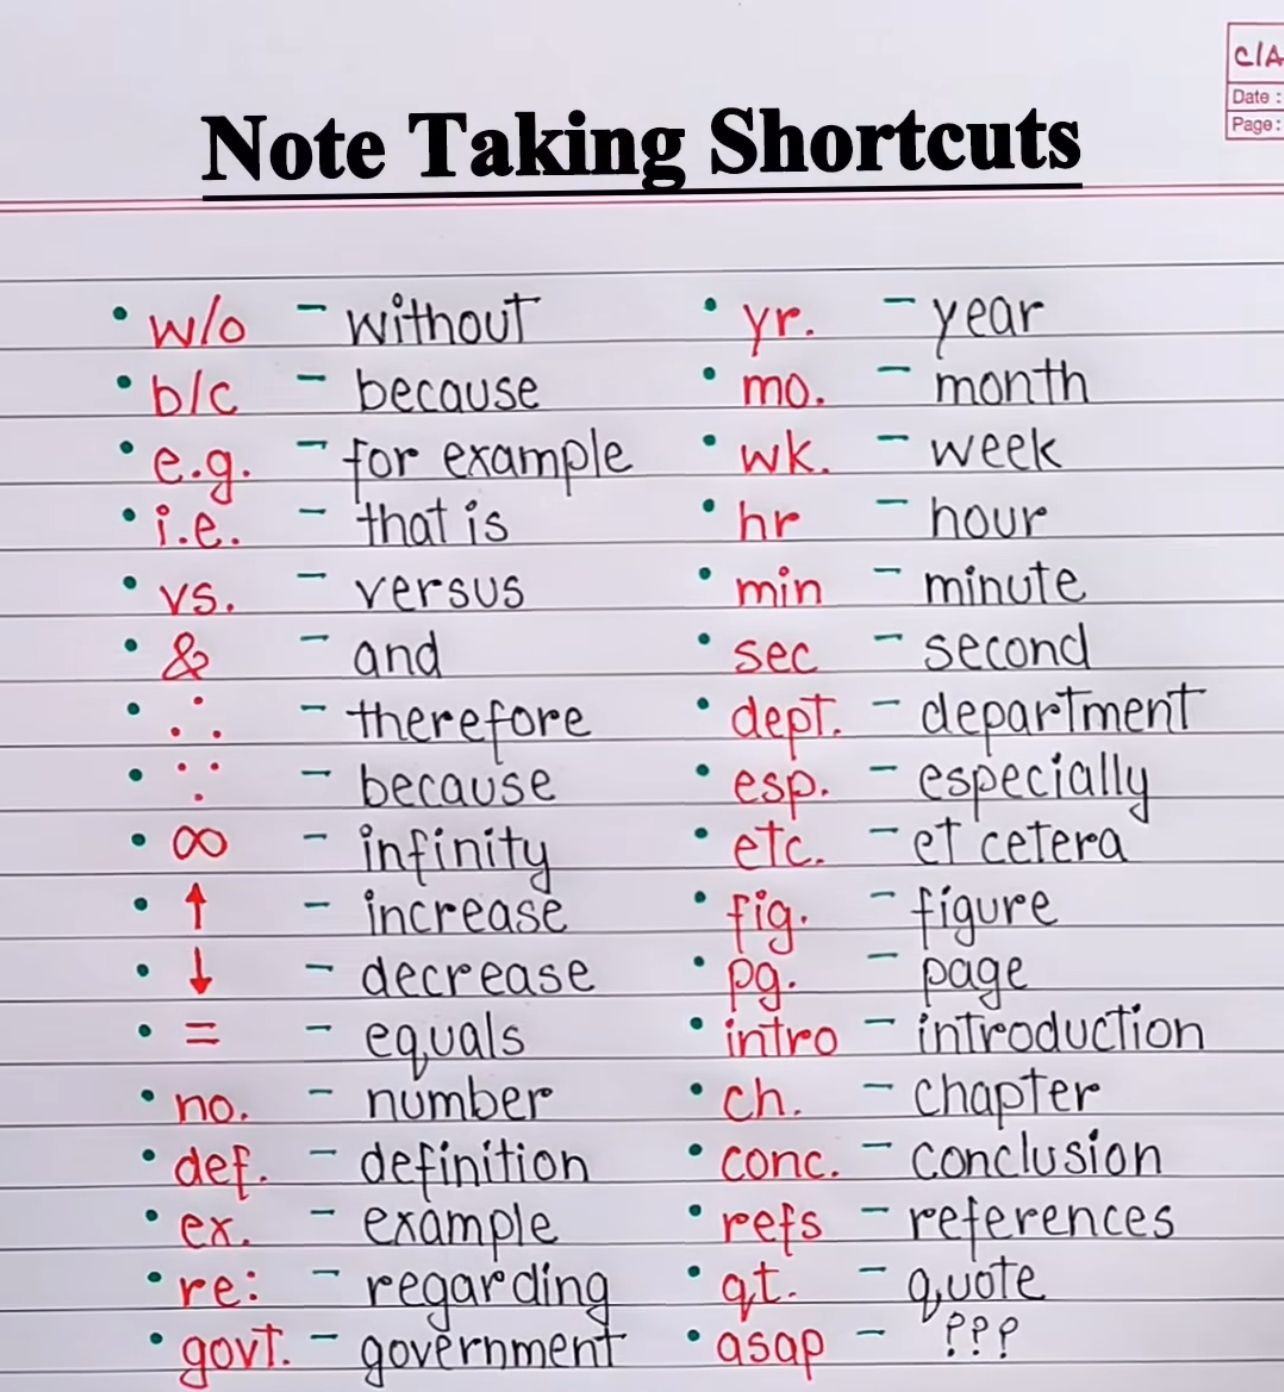 C/A
Date :
Page :
Note Taking Shortcuts
• w/o – without
• b/c – because
• e.g. – for example
• i.e. – that is
• vs. – versus
• & – and
• ∴ – therefore
• ∵ – because
• ∞ – infinity
• ↑ – increase
• ↓ – decrease
• = – equals
• no. – number
• def. – definition
• ex. – example
• re: – regarding
• govt. – government
• yr. – year
• mo. – month
• wk. – week
• hr – hour
• min – minute
• sec – second
• dept. – department
• esp. – especially
• etc. – et cetera
• fig. – figure
• pg. – page
• intro – introduction
• ch. – chapter
• conc. – conclusion
• refs – references
• qt. – quote
• asap – ???